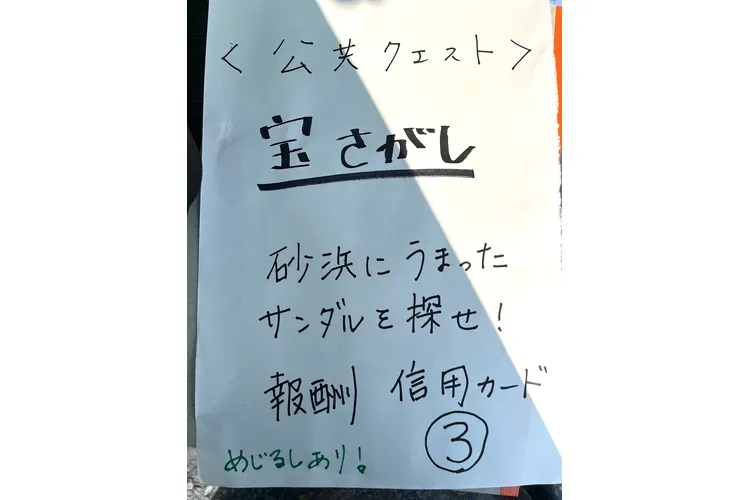 ＜公共クエスト＞
宝さがし
砂浜にうまった
サンダルを探せ！
報酬 信用カード
③
めじるしあり！